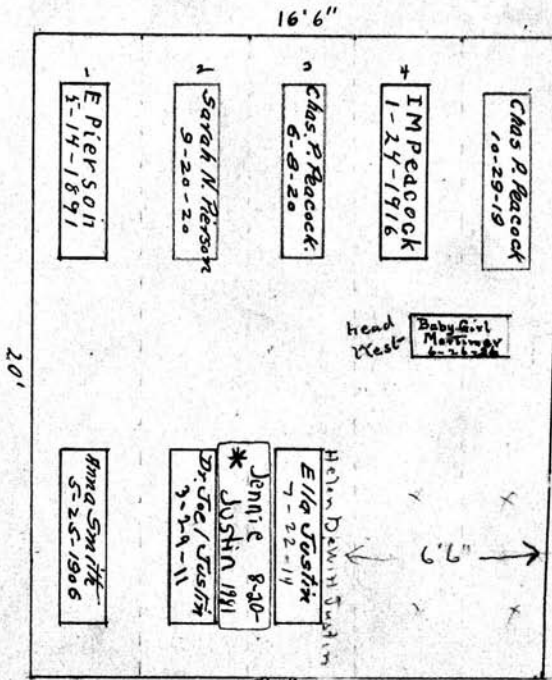 16'6"
1
E Pierson
5-14-1891
2
Sarah N. Pierson
9-20-20
3
Chas. P. Peacock
6-8-20
4
I M Peacock
1-24-1916
Chas P. Peacock
10-29-19
head
West
Baby Girl
Mortimer
20'
Anna Smith
5-25-1906
Dr. Joel Justin
3-29-11
* Jennie 8-20-
Justin 1981
Ella Justin
7-22-14
Helen Dewitt Justin
6'6"